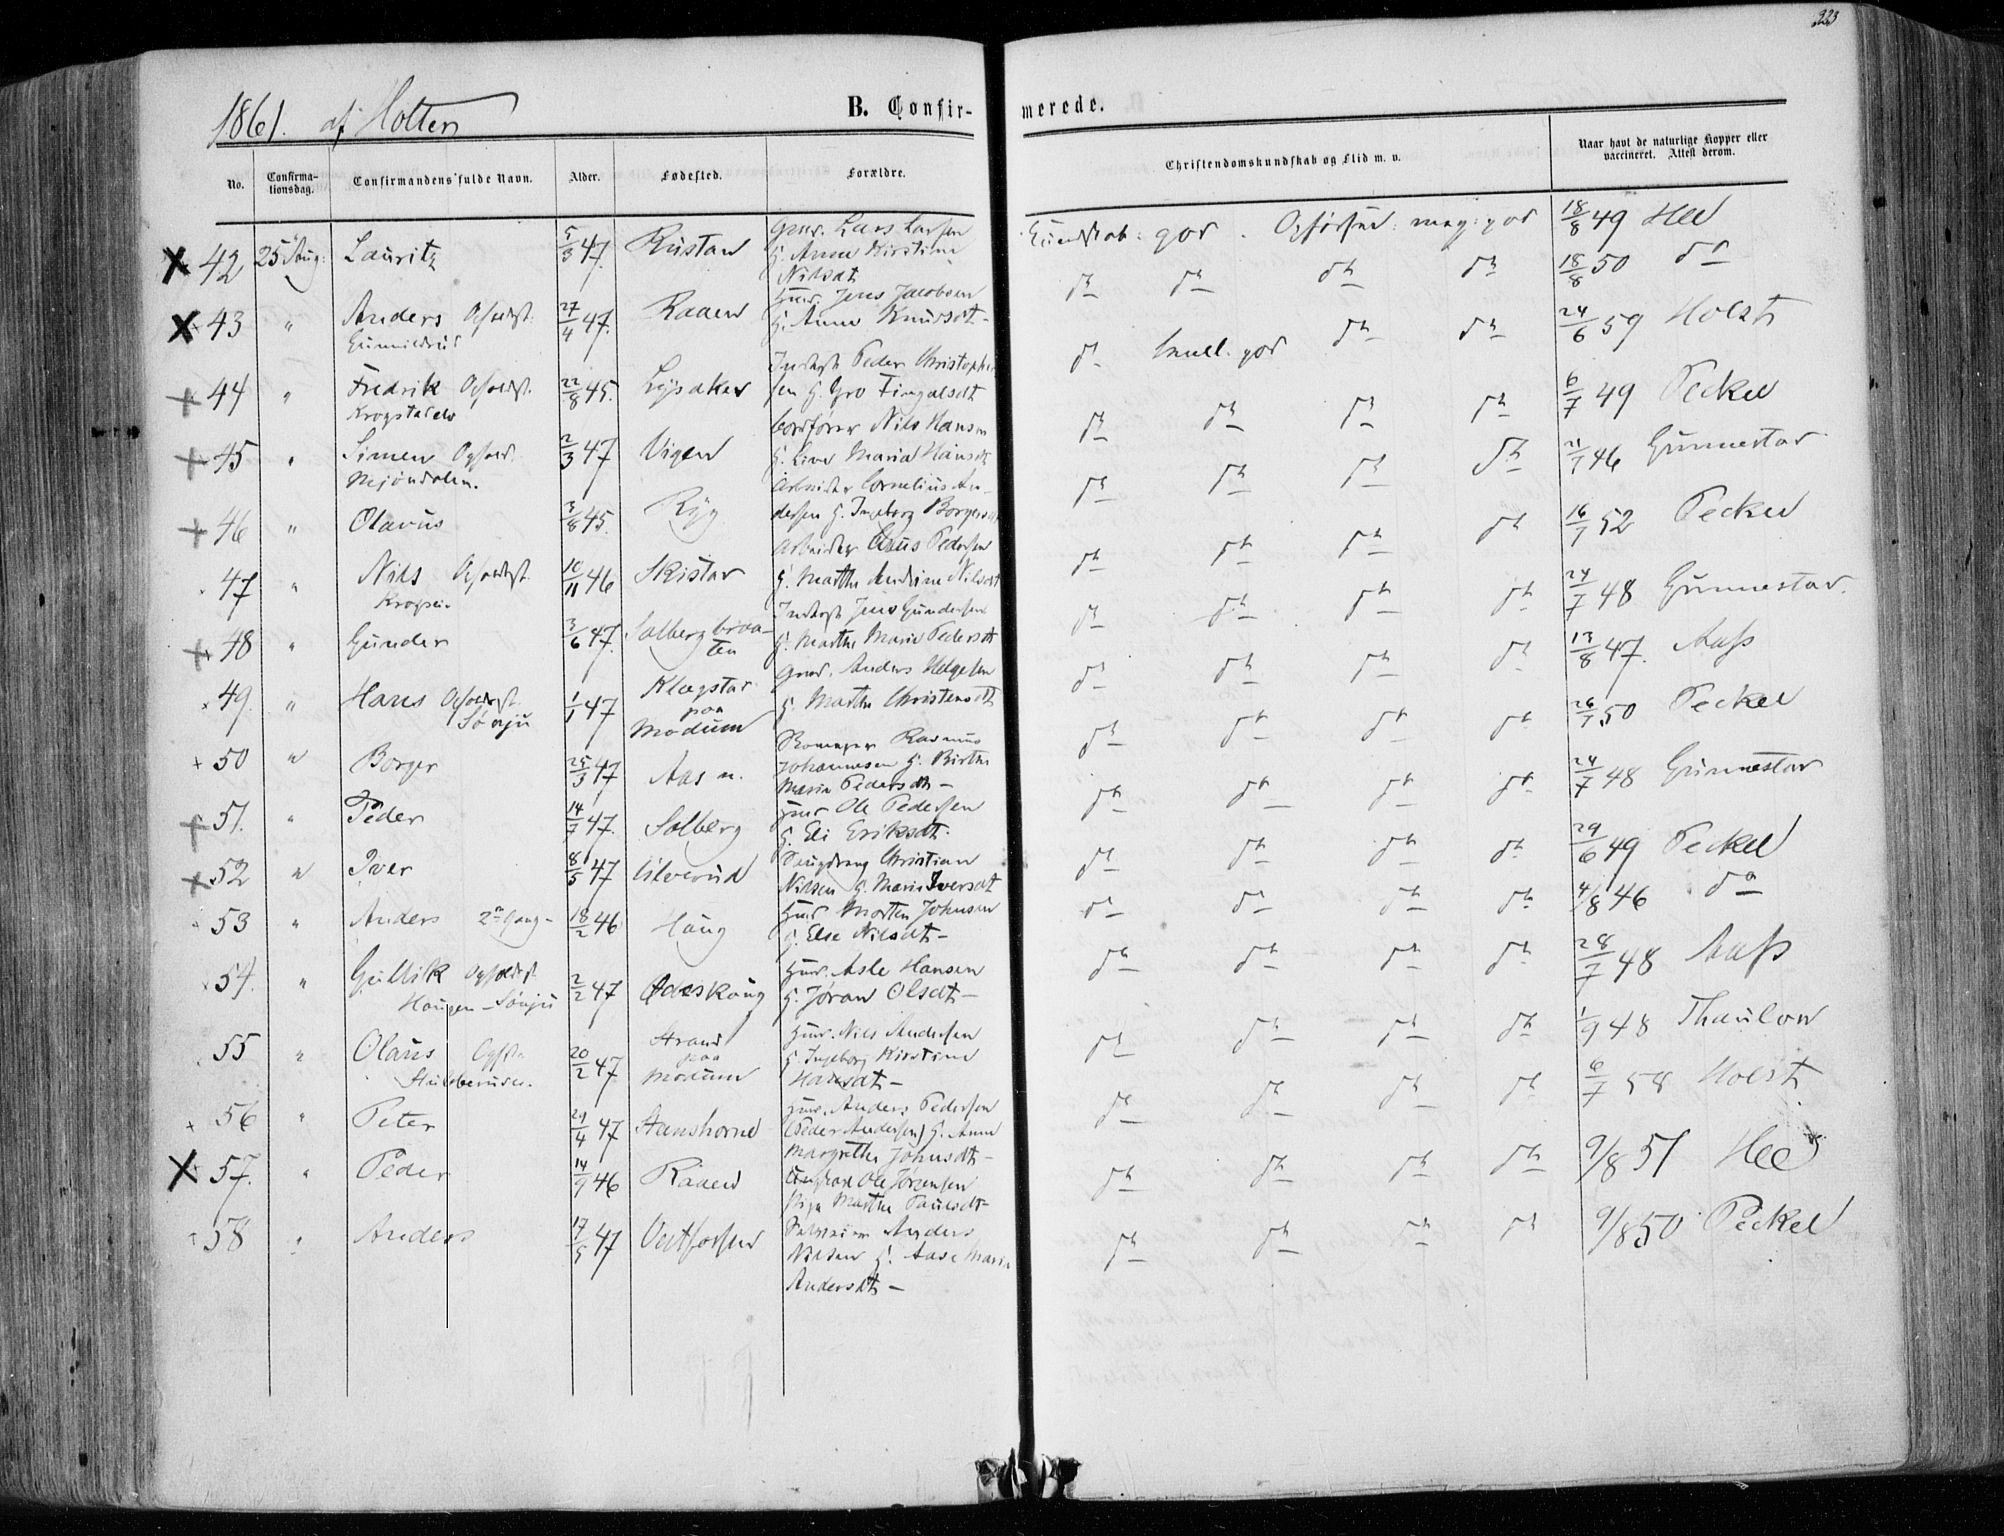 223
1861. af Holter
B. Confir-
merede.
No.
Confirma-
tionsdag.
Confirmandens fulde Navn.
Alder.
Fødested.
Forældre.
Christendomskundskab og Flid m. v.
Naar havt de naturlige Kopper eller
vaccineret. Attest derom.
42 25 Aug: Lauritz 5/3 47. Rustan Gmd. Lars Larsen
H. Anne Kirstine
Nilsdt
Kundskab: god. Opførsel: meg: god 18/8 49 Hee
43 " Anders Opholdst. 27/4 47. Raaen Hmd. Jens Jacobsen
H. Anne Knudsdt -
dt dt dt dt 18/8 50 do
44 " Fredrik Opholdst.
Krogstadelv 22/8 45. Lysaker Inderst Peder Christopher-
sen H. Gro Fingalsdt
dt temel. god dt dt 24/6 59 Holst
45 " Simen Ophold.
Mjøndalen. 2/3 47 Vigen Bordfører Nils Hansen
H. Live Maria Hansdt
dt dt dt dt 6/7 49 Peckel
46 " Olavus 3/8 45. Ryg Arbeider Cornelius An-
dersen H. Ingeborg Borgersdt
dt dt dt dt 2/7 46 Gunnestad
47 " Nils Opholdst. 10/11 46 Skistad Arbeider Claus Pedersen
H. Marthe Andrine Nilsdt
dt dt dt dt 16/7 52 Peckel
48 " Gunder 3/6 47. Solbergbraa-
ten Inderst Jens Gundersen
H. Marthe Marie Pedersdt
dt dt dt dt 24/7 48 Gunnestad.
49. " Hans Opholdst. 1/1 47 Klægstad
paa
Modum Gmd. Anders Helgesen
H. Marthe Christensdt
dt dt dt dt 13/8 47. Aass
50 " Borger 25/3 47 Aas n. Rasmus
Johannesen H. Birthe
Maria Pedersdt -
dt dt dt dt 26/7 50 Peckel
51. " Peder 14/7 47. Solberg Hmd Ole Pedersen
H. Eli Eriksdt.
dt dt dt dt 24/7 48 Gunnestad
52 " Iver 8/5 47 Ulverud Christian
Nilsen H. Marie Iversdt
dt dt dt dt 29/6 49 Peckel
53 " Anders 2n Gang - 18/2 46 Haug Hmd Morten Johnsen
H. Else Nilsdt -
dt dt dt dt 4/8 46 do
54. " Gullik Opholdst.
Haugen - Sønju 2/2 47 Ødeskoug Hmd. Asle Hansen
H. Jøran Olsdt -
dt dt dt dt 28/7 48 Aass
55 " Olaus 20/2 47 Strand
paa
Modum Hmd. Nils Andersen
H. Ingeborg Kirstine
Hansdt -
dt dt dt dt 1/9 48 Thaulow
56 " Peter 29/4 47 Stenshorne Hmd. Anders Pedersen
(Peder Andersen) H. Anne
Margrethe Johnsdt -
dt dt dt dt 6/7 58 Holst
57. " Peder 14/9 46 Raaen Ungkarl Ole Jørgensen
Pige Marthe Paulsdt -
dt dt dt dt 9/8 51 Hee
58 " Anders 17/5 47 Vestfossen Anders
Nilsen H. Aase Maria
Andersdt -
dt dt dt dt 9/8 50 Peckel